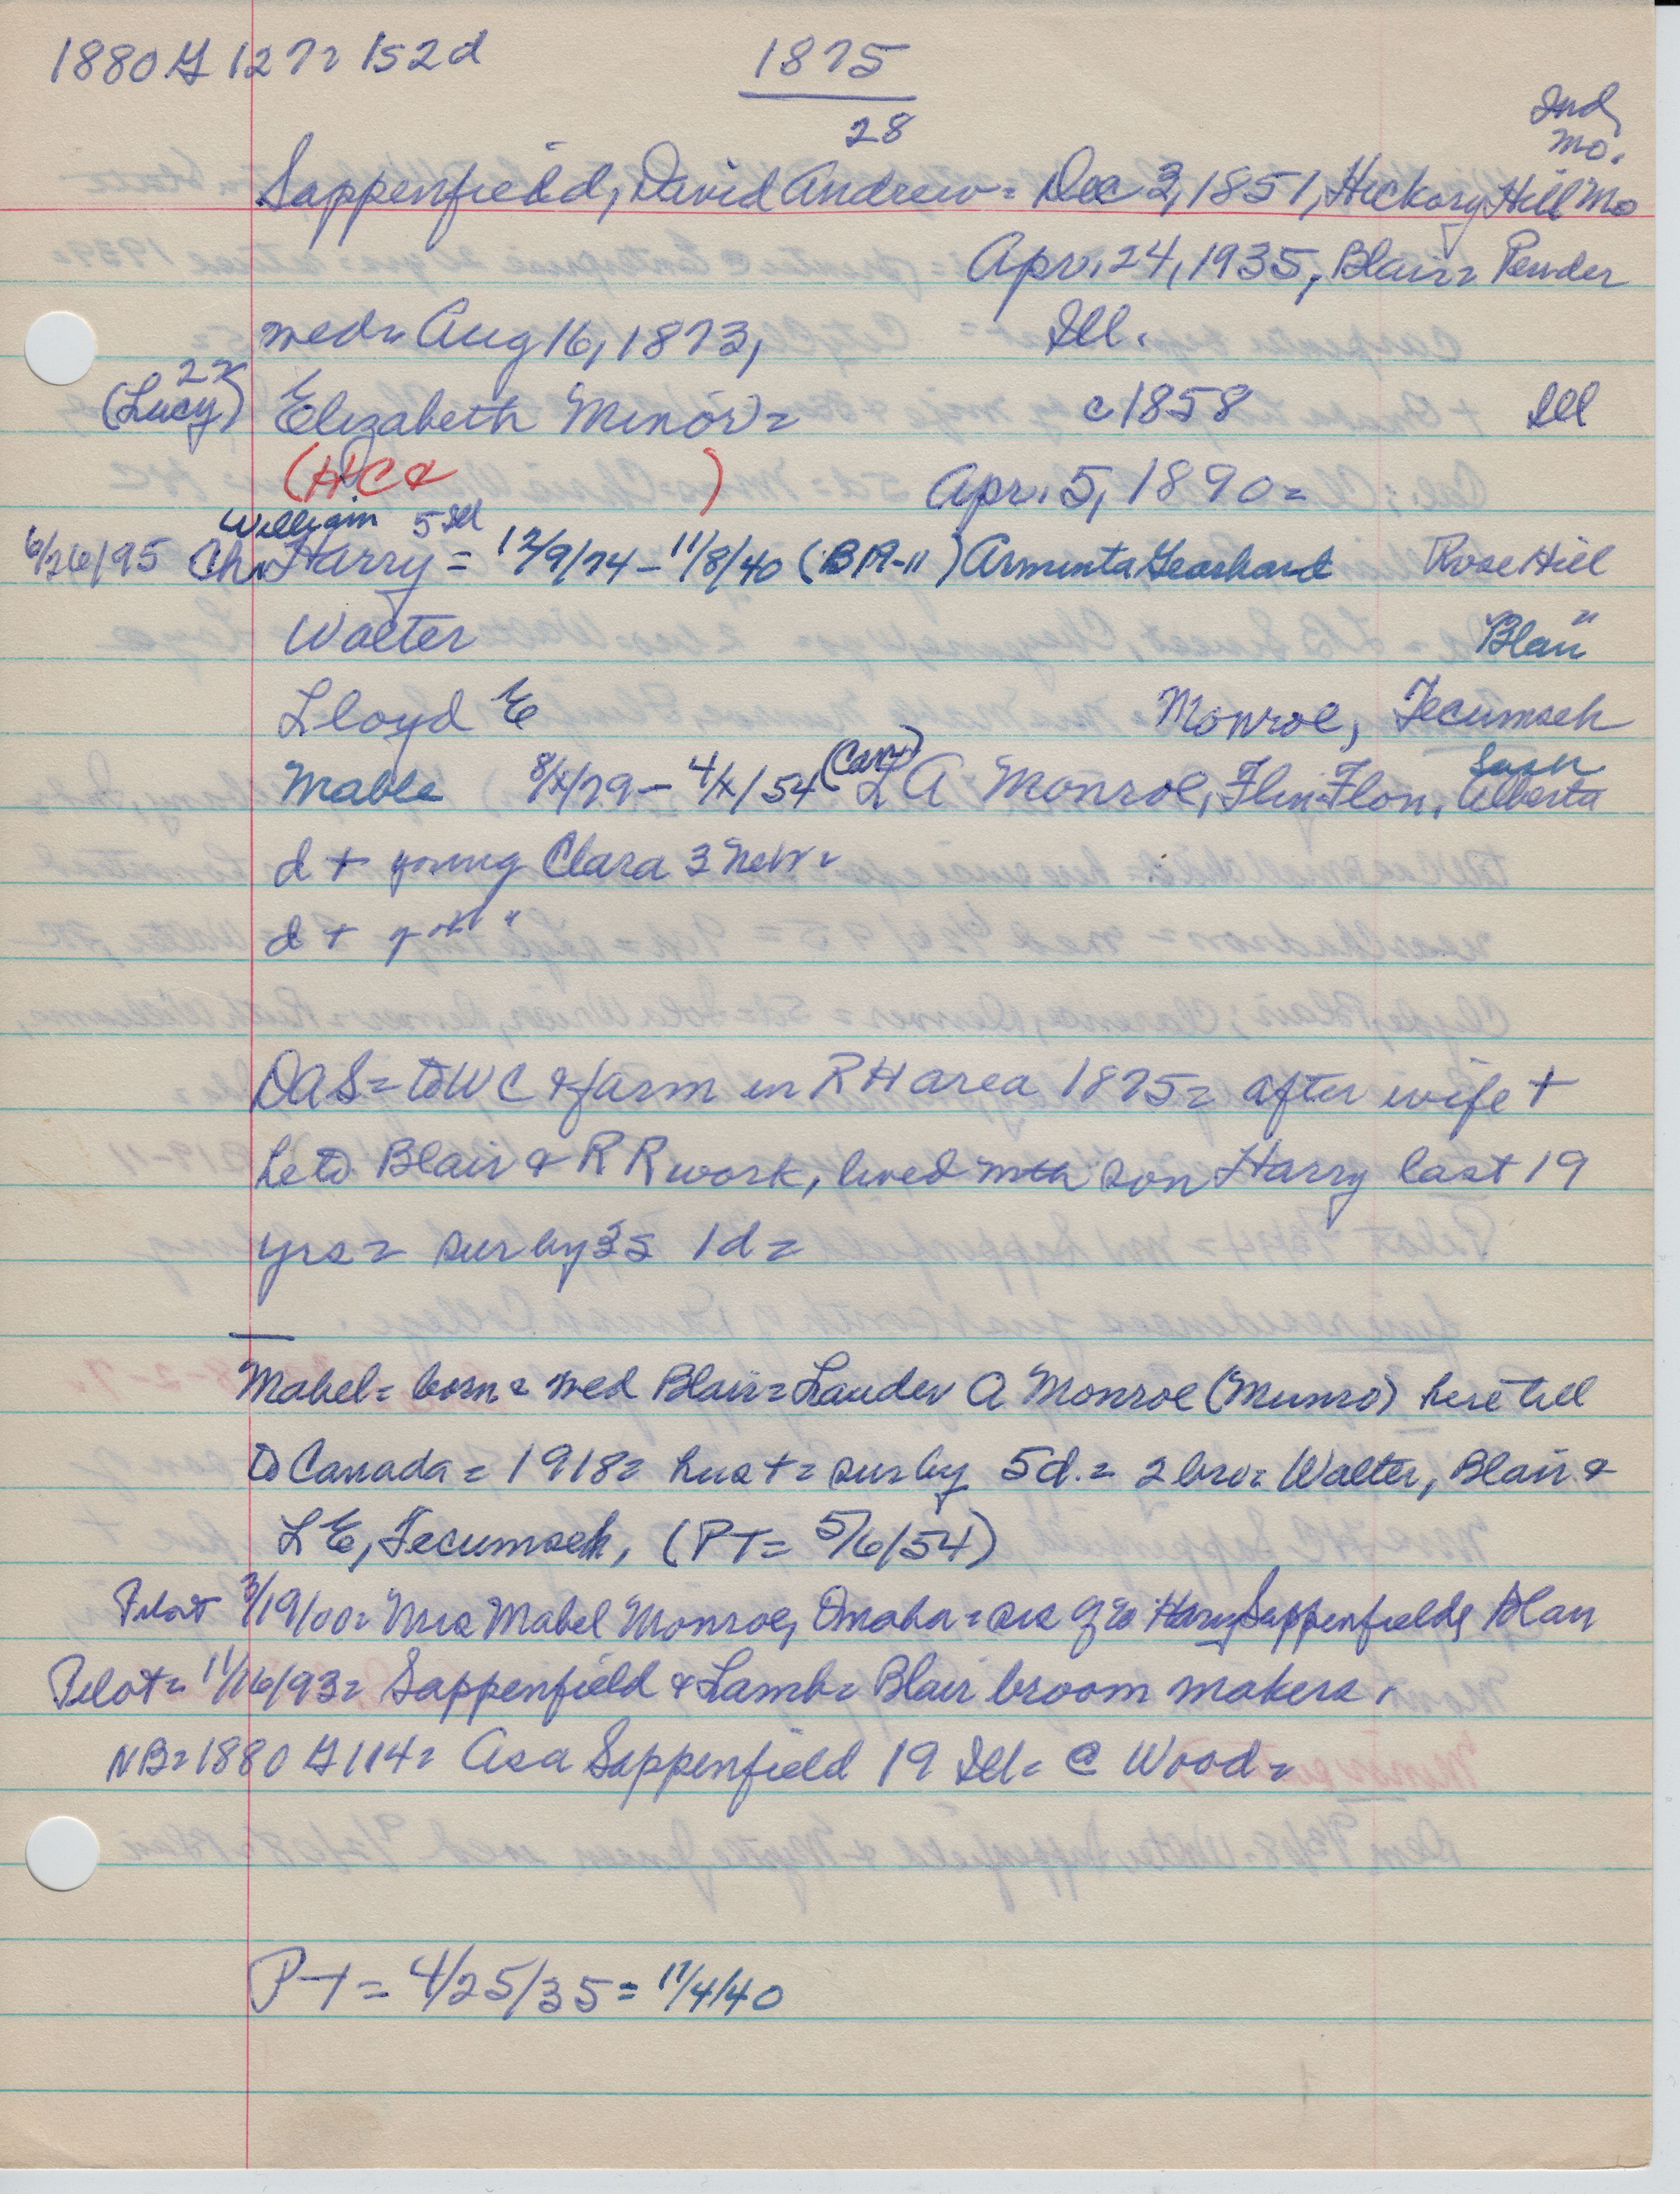 1880 G 127= 152d 1875
28 Ind
Mo.
Sappenfield, David Andrew= Dec 3, 1851, Hickory Hill Mo
Apr. 24, 1935, Blair= Pender
wed= Aug 16, 1873, Ill.
22
(Lucy) Elizabeth Minor= c1858 Ill
(HC & ) Apr. 5, 1890=
William 5 Ill
6/26/95 Ch= Harry = 12/9/74 - 11/8/40 (B19-11) Arminta Gearhart Rose Hill
Walter "
Blair
Lloyd E Monroe, Tecumseh
Mable 8/x/79 - 4/x/54 (Can) L A Monroe, Flin-Flon, Alberta
Sask
d + young Clara 3 Neb=
d + "
DAS= to WC & farm in RH area 1875= after wife +
he to Blair & RR work, lived with son Harry last 19
yrs= sur by 3s 1d=
Mabel= born & wed Blair= Lauder A Monroe (Munro) here till
to Canada= 1918= hus += sur by 5d.= 2 bro= Walter, Blair &
L E, Tecumseh, (PT= 5/6/54)
Pilot 3/19/00= Mrs Mabel Monroe, Omaha= sis of Harry Sappenfield, Blair
Pilot= 11/16/93= Sappenfield & Lamb= Blair broom makers.
NB= 1880 G 114= Asa Sappenfield 19 Ill= @ Wood=
PT= 4/25/35= 11/4/40